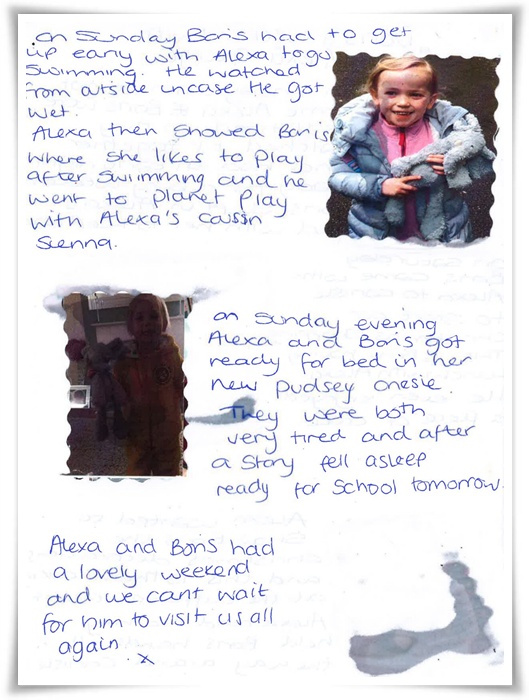 on Sunday Boris had to get
up early with Alexa togo
Swimming. He watched
from outside uncase He got
wet.
Alexa then showed Boris
where she likes to play
after swimming and he
went to planet play
with Alexa's coussin
Sienna.
on Sunday evening
Alexa and Boris got
ready for bed in her
new pudsey onesie.
They were both
very tired and after
a story fell asleep
ready for school tomorrow.
Alexa and Boris had
a lovely weekend
and we cant wait
for him to visit us all
again. x